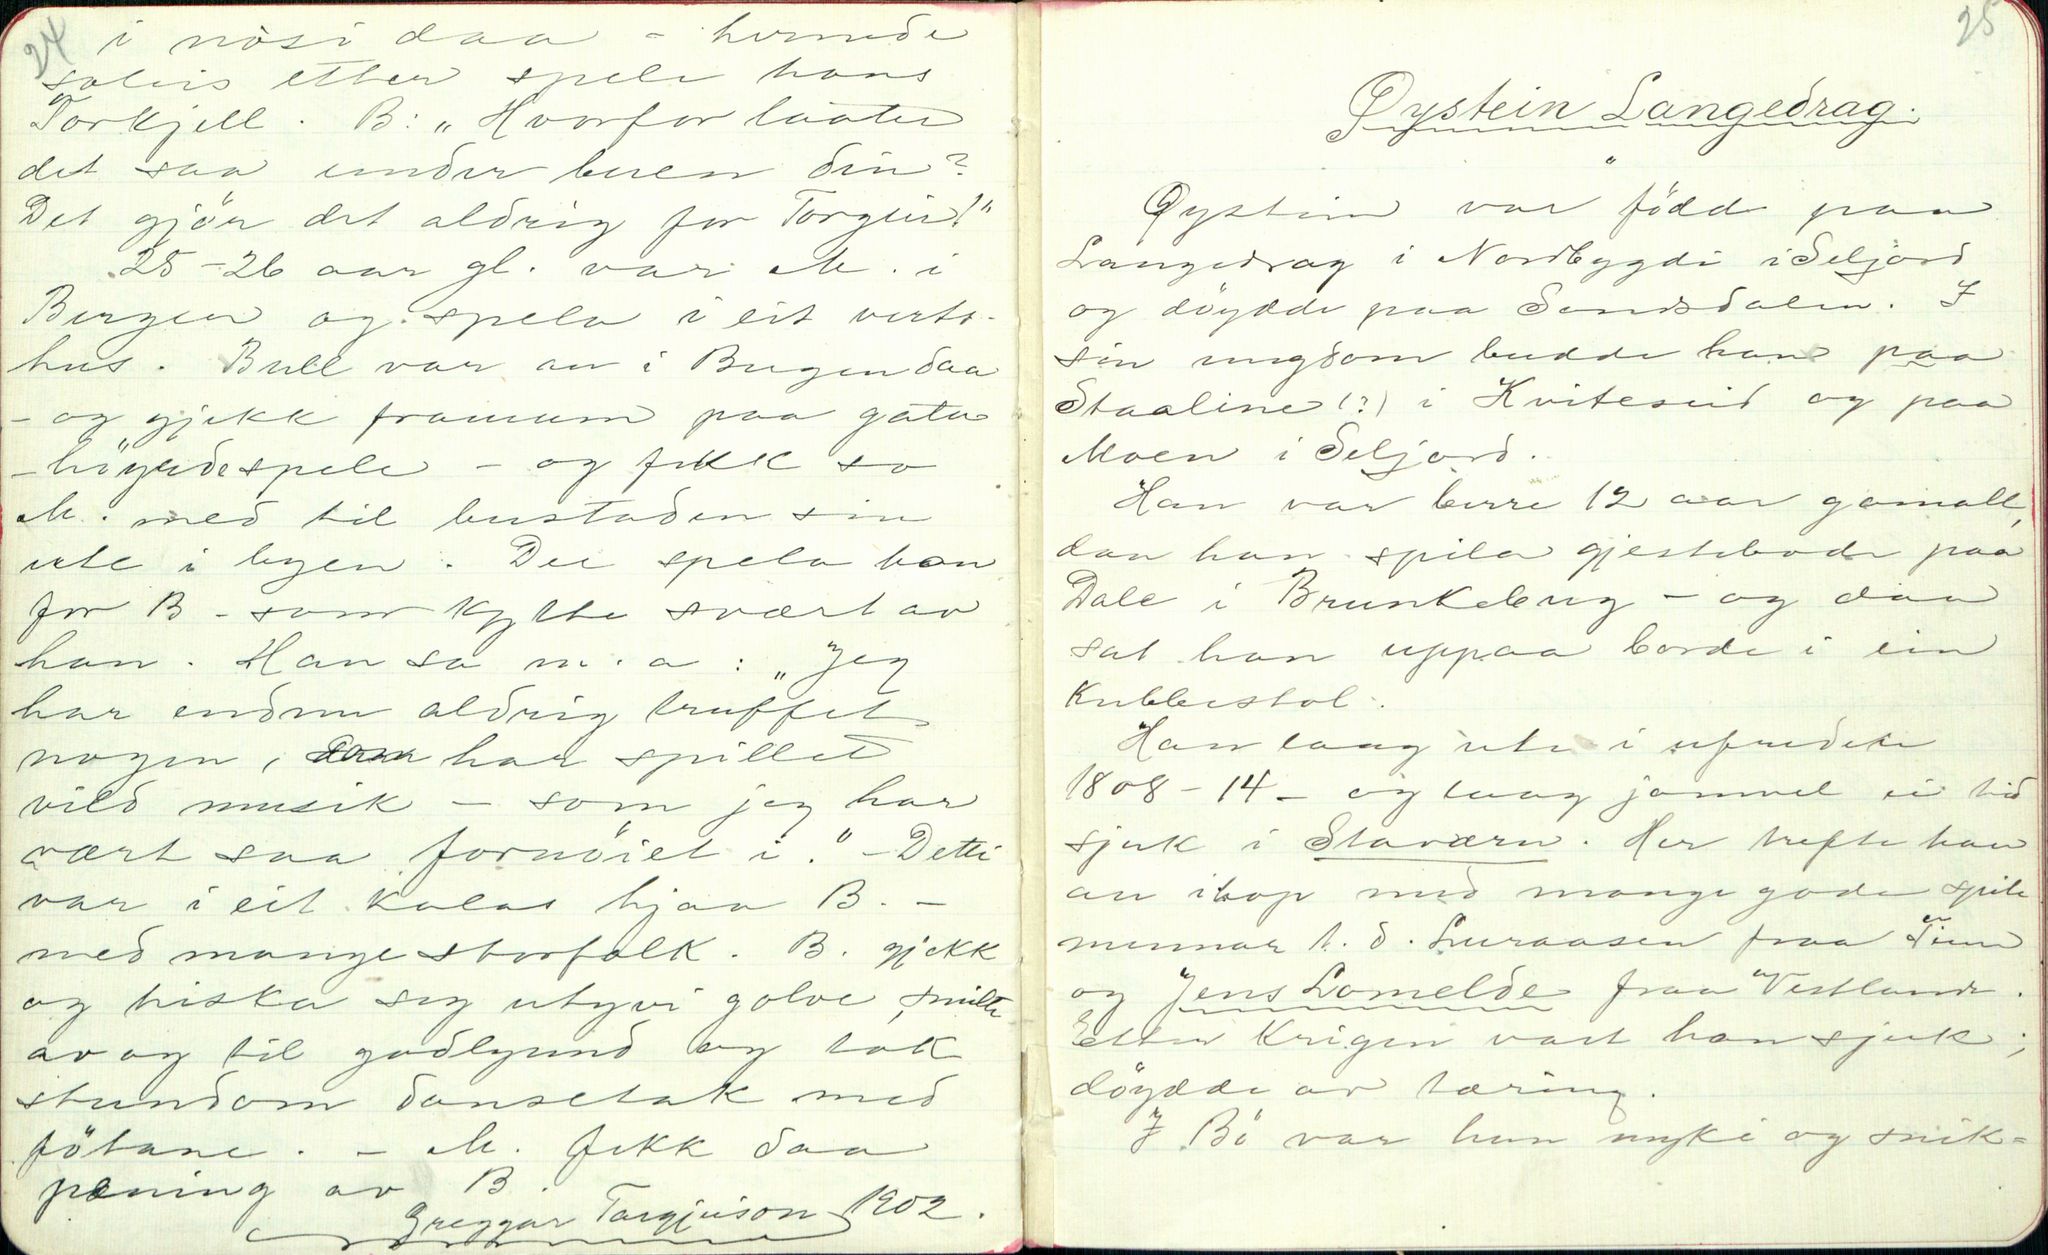 24
i nösi daa - hermde
soleis etter spele hans
Torkjell. B: „Hvorfor laater
det saa under buen din?
Det gjör det aldrig for Torgeir!"
25-26 aar gl. var M. i
Bergen og spela i eit verts-
hus. Bull var au i Bergen daa
- og gjekk framum paa gata
- höyrde spele - og fekk so
M. med til bustaden sin
ute i byen. Der spela han
for B - som kytte svært av
han. Han sa m. a: „Jeg
har endnu aldrig truffet
nogen, som har spillet
vild musik - som jeg har
vært saa fornöiet i." - Dette
var i eit kalas hjaa B. -
med mange storfolk. B. gjekk
og hiska seg utyvi golve, smilte
av og til godlynd og tok
stundom dansetak med
fötane. - M. fekk daa
pæning av B.
Greggar Targjeison 1902.
25
Øystein Langedrag.
Øystein var född paa
Langedrag i Nordbygdi i Seljord
og döydde paa Sandsdalen. I
sin ungdom budde han paa
Staaline (?) i Kviteseid og paa
Moen i Seljord.
Han var berre 12 aar gamall,
daa han spila gjestebode paa
Dale i Brunkeberg - og daa
sat han uppaa borde i ein
kubbestol.
Han laag ute i ufredete
1808-14 - og laag jamvel ei tid
sjuk i Staværn. Her trefte han
au ihop med mange gode spile
mennar t. d. Luraasen fraa Tinn
og Jens Lomelde fraa Vestlande.
Etter krigen vart han sjuk;
döydde av tæring.
I Bö var han mykje og snik-